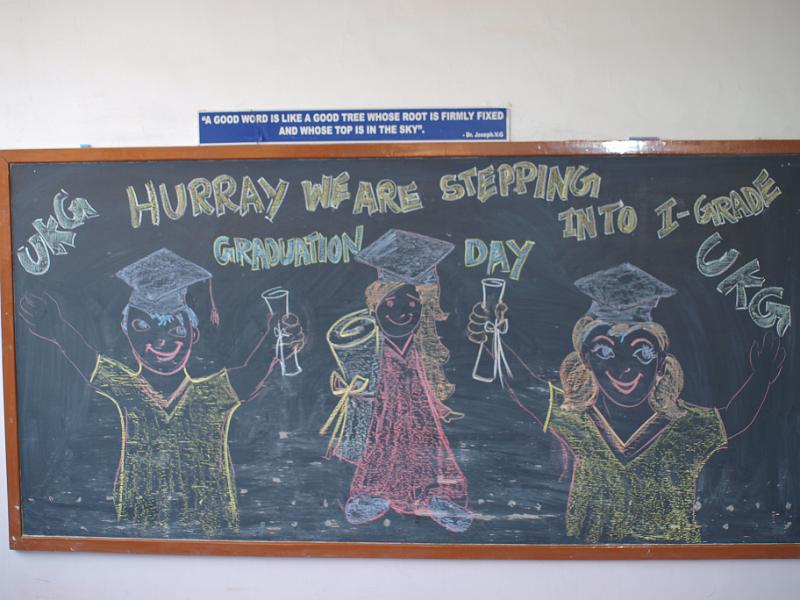 "A GOOD WORD IS LIKE A GOOD TREE WHOSE ROOT IS FIRMLY FIXED
AND WHOSE TOP IS IN THE SKY".
- Dr. Joseph.V.G
UKG
HURRAY WE ARE STEPPING
INTO I-GRADE
GRADUATION DAY
UKG